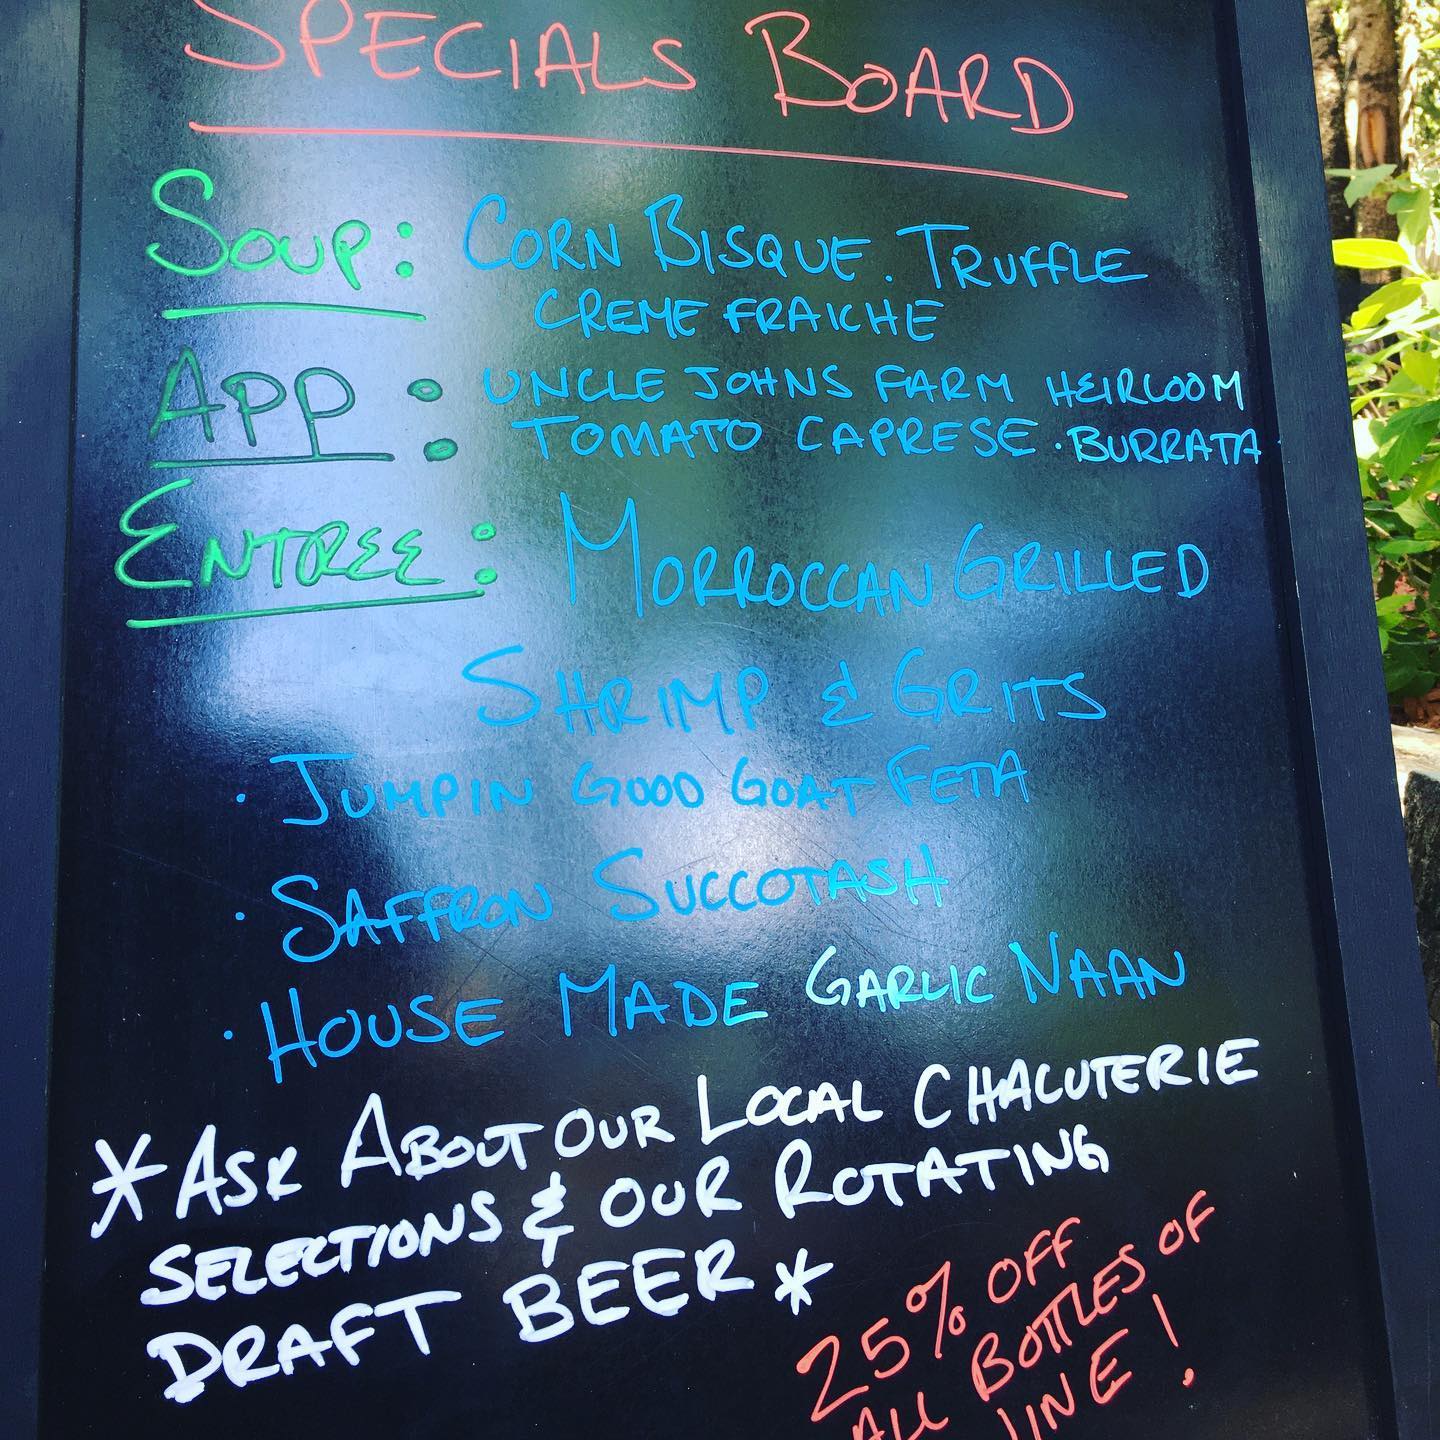 SPECIALS BOARD
SOUP: CORN BISQUE. TRUFFLE
CREME FRAICHE
APP: UNCLE JOHNS FARM HEIRLOOM
TOMATO CAPRESE · BURRATA
ENTREE: MORROCCAN GRILLED
SHRIMP & GRITS
· JUMPIN GOOD GOAT FETA
· SAFFRON SUCCOTASH
· HOUSE MADE GARLIC NAAN
*ASK ABOUT OUR LOCAL CHACUTERIE
SELECTIONS & OUR ROTATING
DRAFT BEER*
25% OFF
ALL BOTTLES OF
WINE!